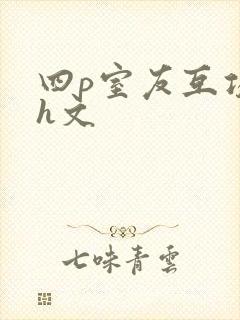 四p室友互
h文
七味青雲